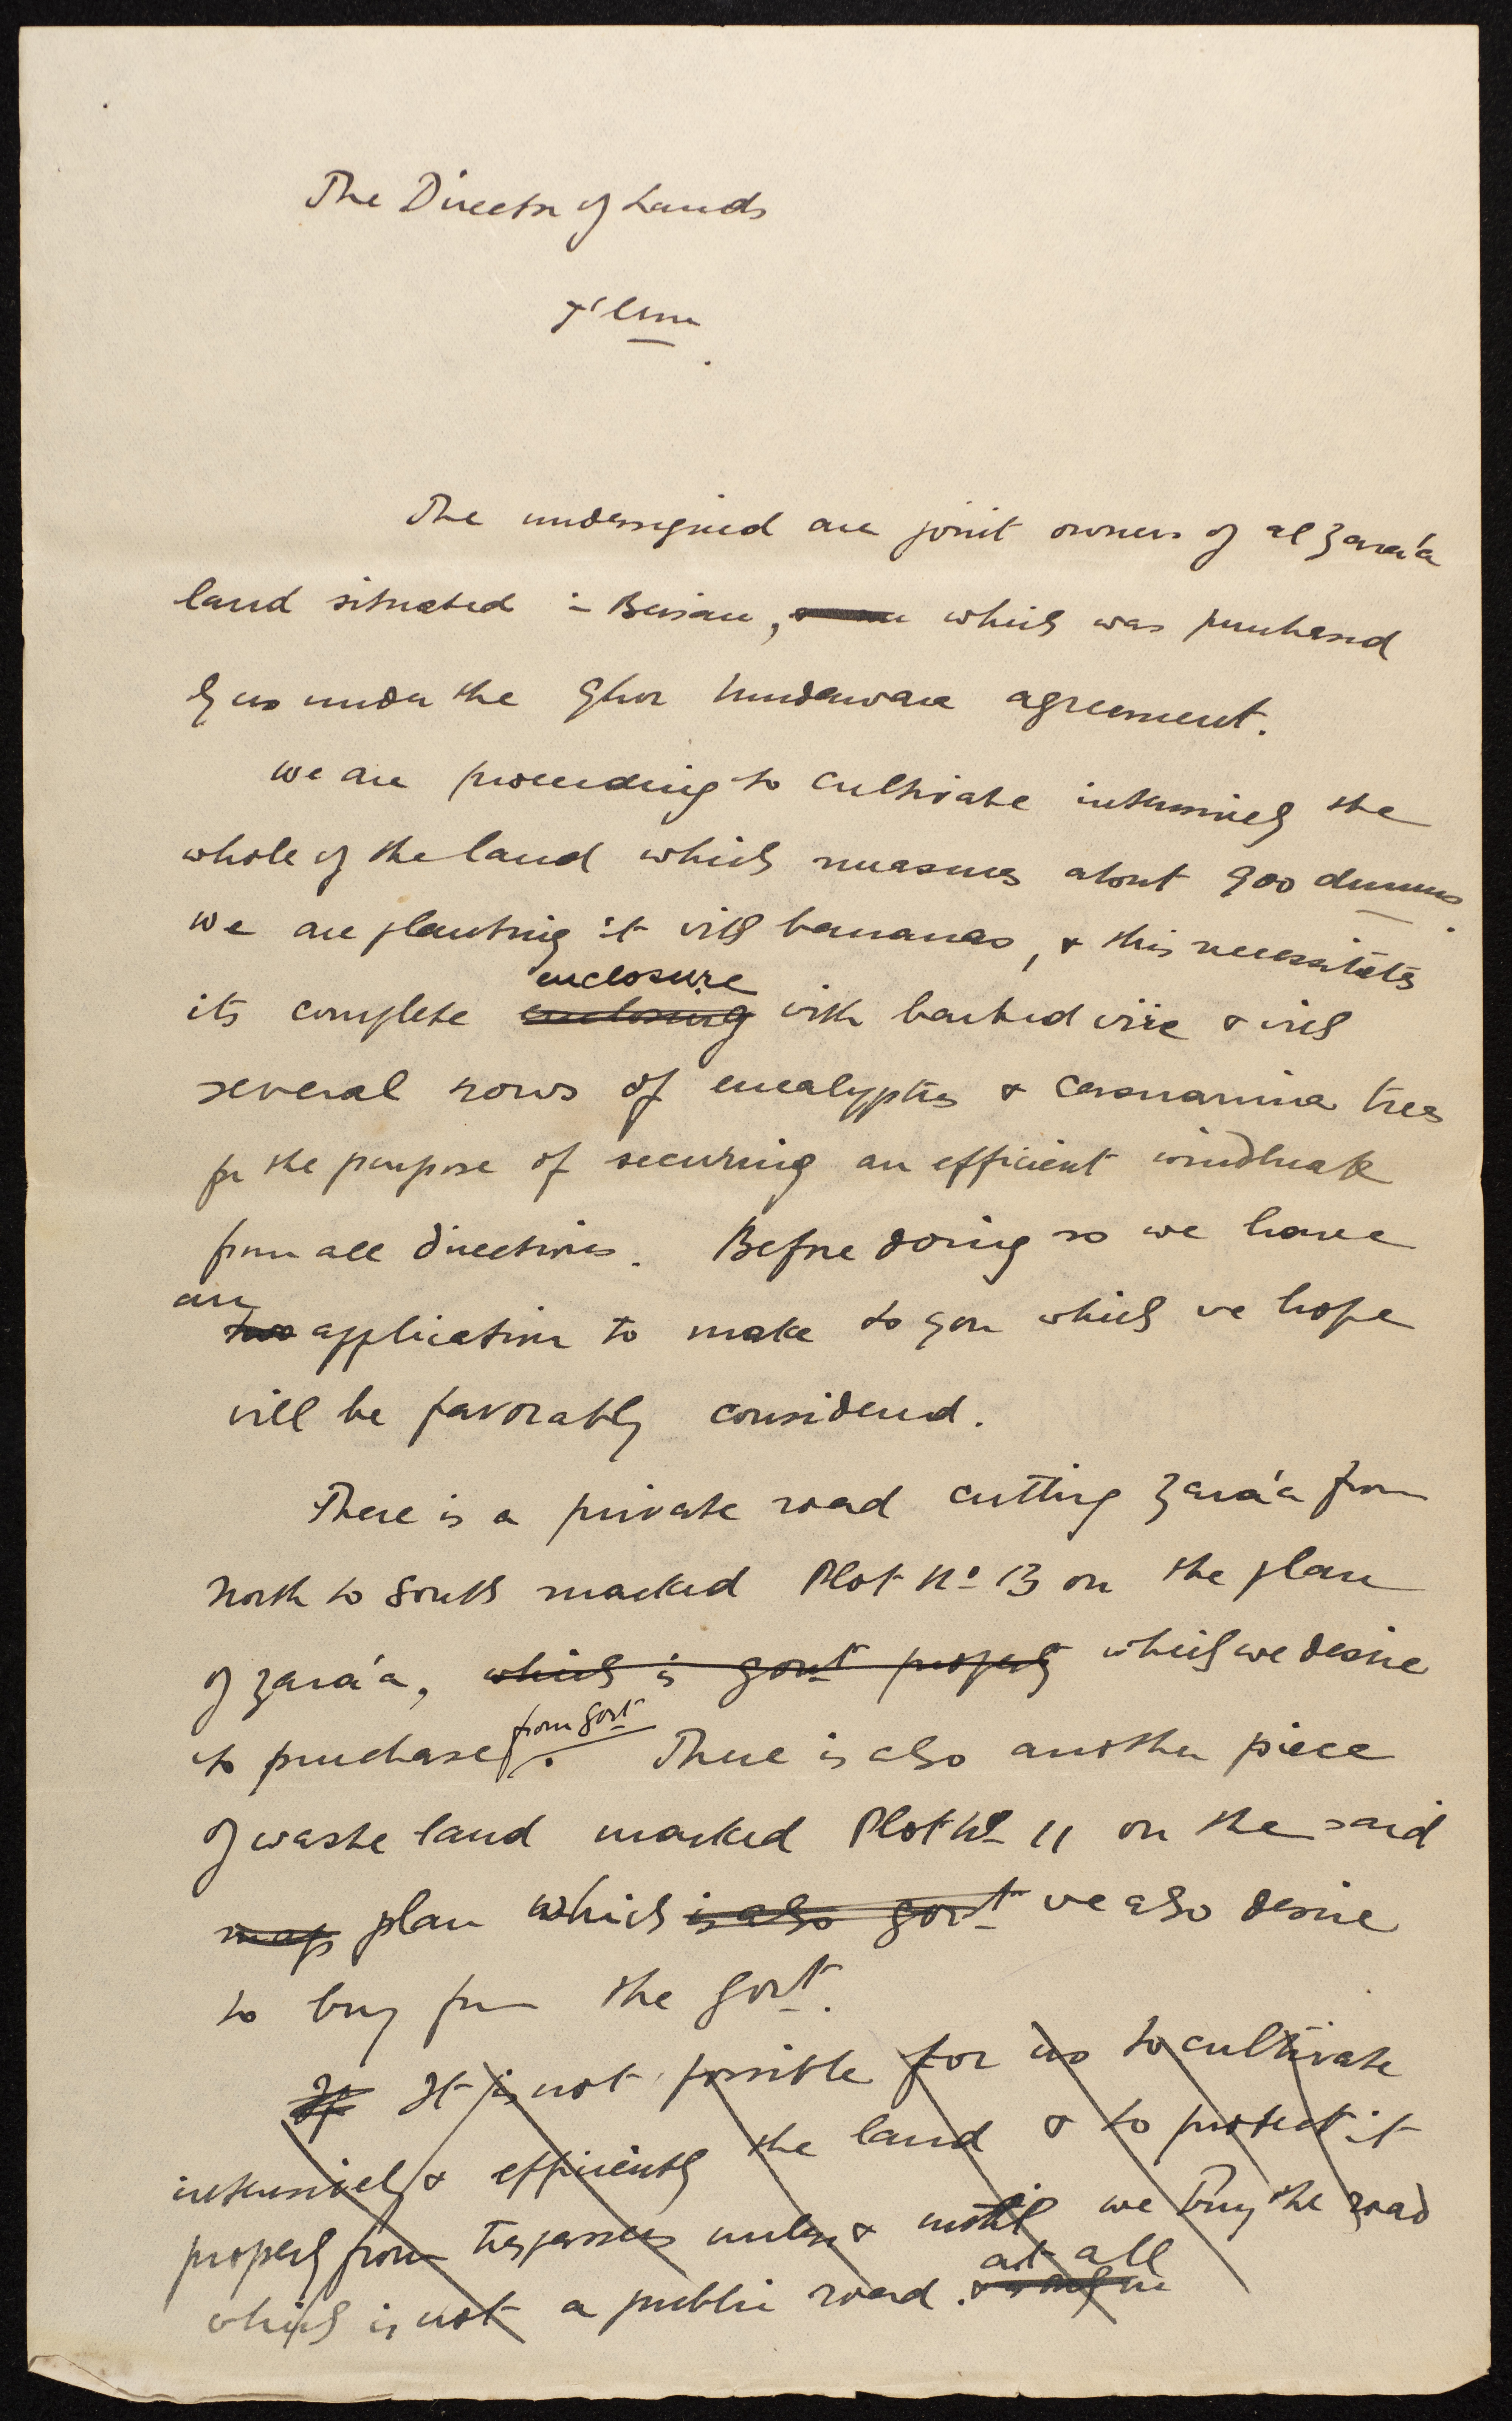 The Director of Lands
J'lem
The undersigned are joint owners of al Zara'a
land situated in Beisan, which was purchased
by us under the Ghor Mudawara agreement.
We are proceeding to cultivate intensively the
whole of the land which measures about 900 dunums.
We are planting it with bananas, & this necessitates
enclosure
its complete enclosing with barbed wire & with
several rows of eucalyptus & casuarina trees
for the purpose of securing an efficient windbreak
from all directions. Before doing so we have
an
two application to make to you which we hope
will be favorably considered.
There is a private road cutting Zara'a from
North to South marked Plot No 13 on the plan
of Zara'a, which is Govt property which we desire
from Govt
to purchase. There is also another piece
of waste land marked Plot No 11 on the said
map plan which is also Govt we also desire
to buy from the Govt.
If It is not possible for us to cultivate
intensively & efficiently the land & to protect it
properly from trespassers unless & until we buy the road
at all
which is not a public road.